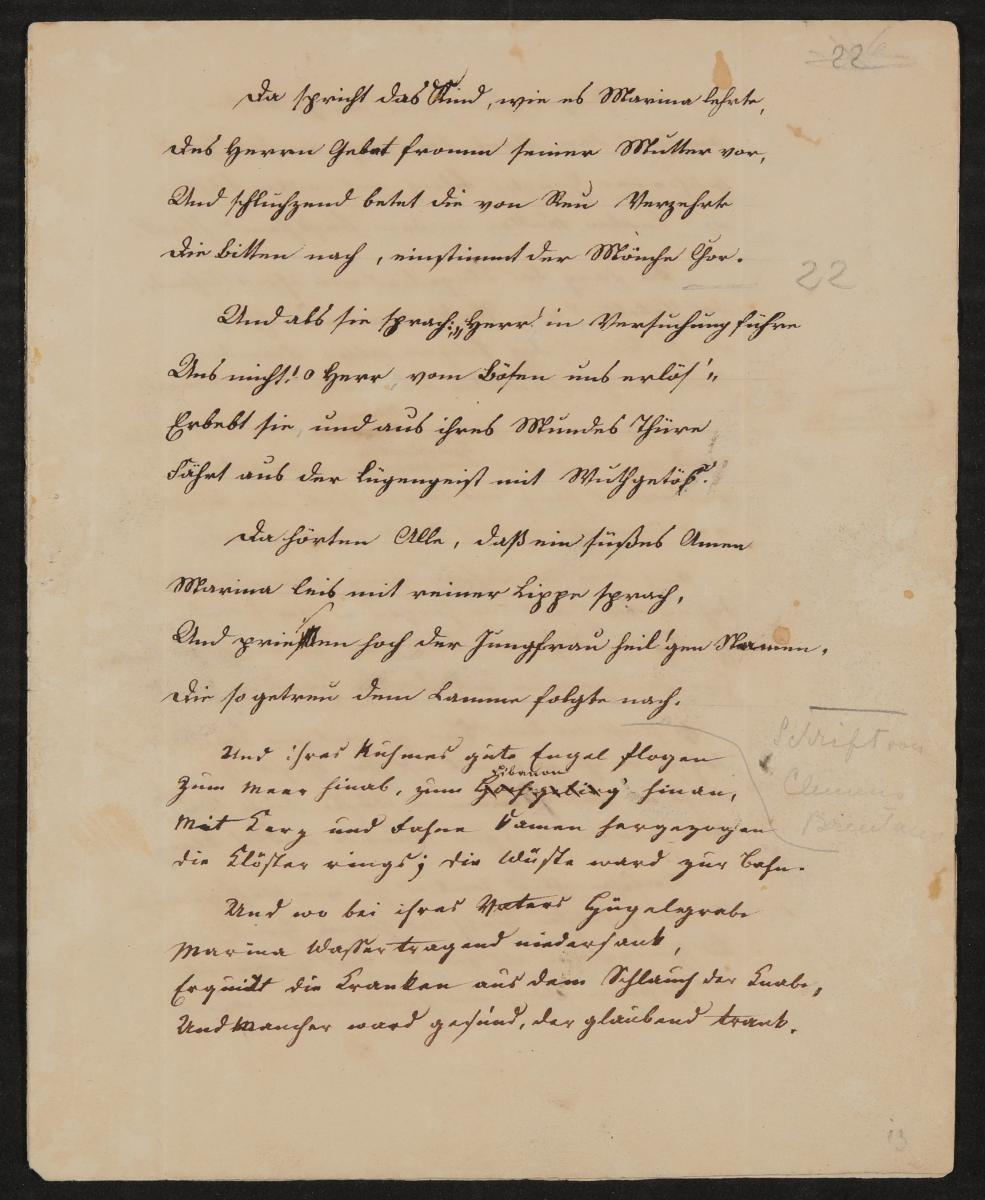 22
Da spricht das Kind, wie es Marina lehrte,
Des Herrn Gebet fromm seiner Mutter vor,
Und schluchzend betet die von Reu Verzehrte
Die Bitten nach, einstimmt der Mönche Chor.
22
Und als sie sprach: „Herr! in Versuchung führe
Uns nicht! o Herr vom Bösen uns erlös'"
Erbebt sie, und aus ihres Mundes Thüre
Fährt aus der Lügengeist mit Wuthgetös'.
Da hörten Alle, daß ein süßes Amen
Marina leis mit reiner Lippe sprach,
Und priesen hoch der Jungfrau heil'gen Namen,
Die so getreu dem Lamme folgte nach.
Schrift von
Clemens
Brentano
Und ihres Ruhmes gute Engel flogen
Libanon
Zum Meer hinab, zum Hochgebirg hinan,
Mit Kerz und Fahne kamen hergezogen
die Klöster rings; die Wüste ward zur Bahn.
Und wo bei ihres Vaters Hügelgrabe
Marina Wasser tragend niedersank,
Erquickt die Kranken aus dem Schlauch der Knabe,
Und Mancher ward gesund, der glaubend trank.
13